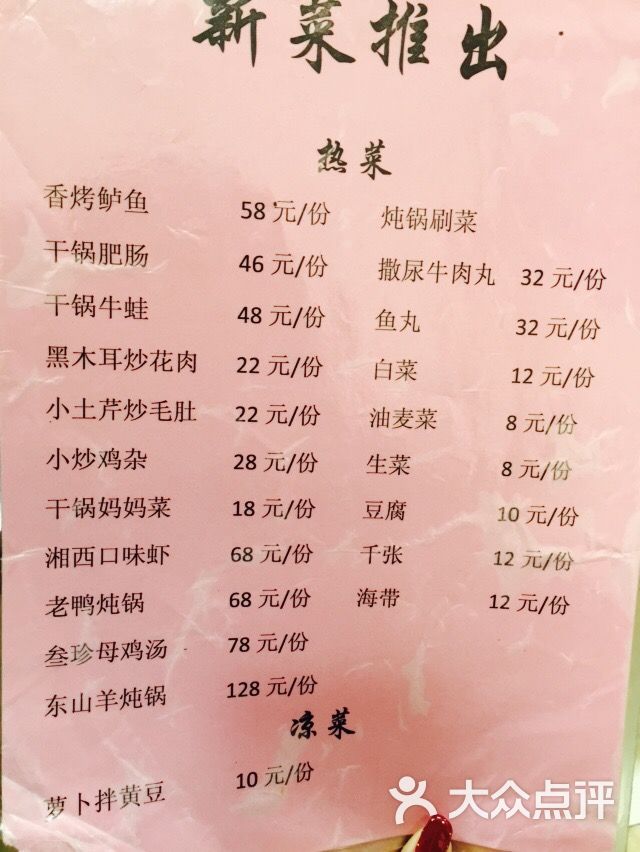 新菜推出
热菜
香烤鲈鱼 58 元/份
干锅肥肠 46 元/份
干锅牛蛙 48 元/份
黑木耳炒花肉 22 元/份
小土芹炒毛肚 22 元/份
小炒鸡杂 28 元/份
干锅妈妈菜 18 元/份
湘西口味虾 68 元/份
老鸭炖锅 68 元/份
叁珍母鸡汤 78 元/份
东山羊炖锅 128 元/份
炖锅刷菜
撒尿牛肉丸 32 元/份
鱼丸 32 元/份
白菜 12 元/份
油麦菜 8 元/份
生菜 8 元/份
豆腐 10 元/份
千张 12 元/份
海带 12 元/份
凉菜
萝卜拌黄豆 10 元/份
大众点评